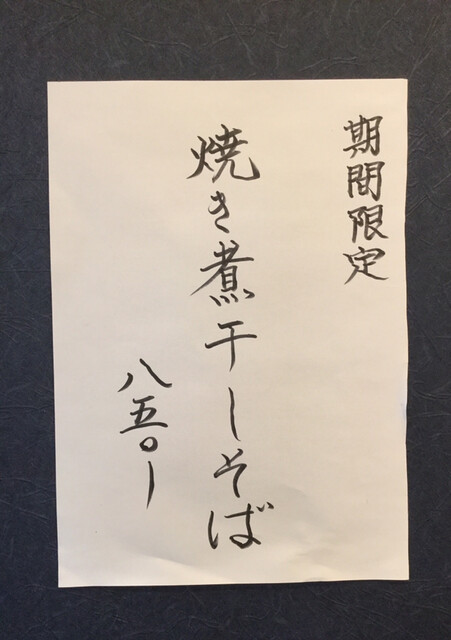 期間限定
焼き煮干しそば
八五〇ー